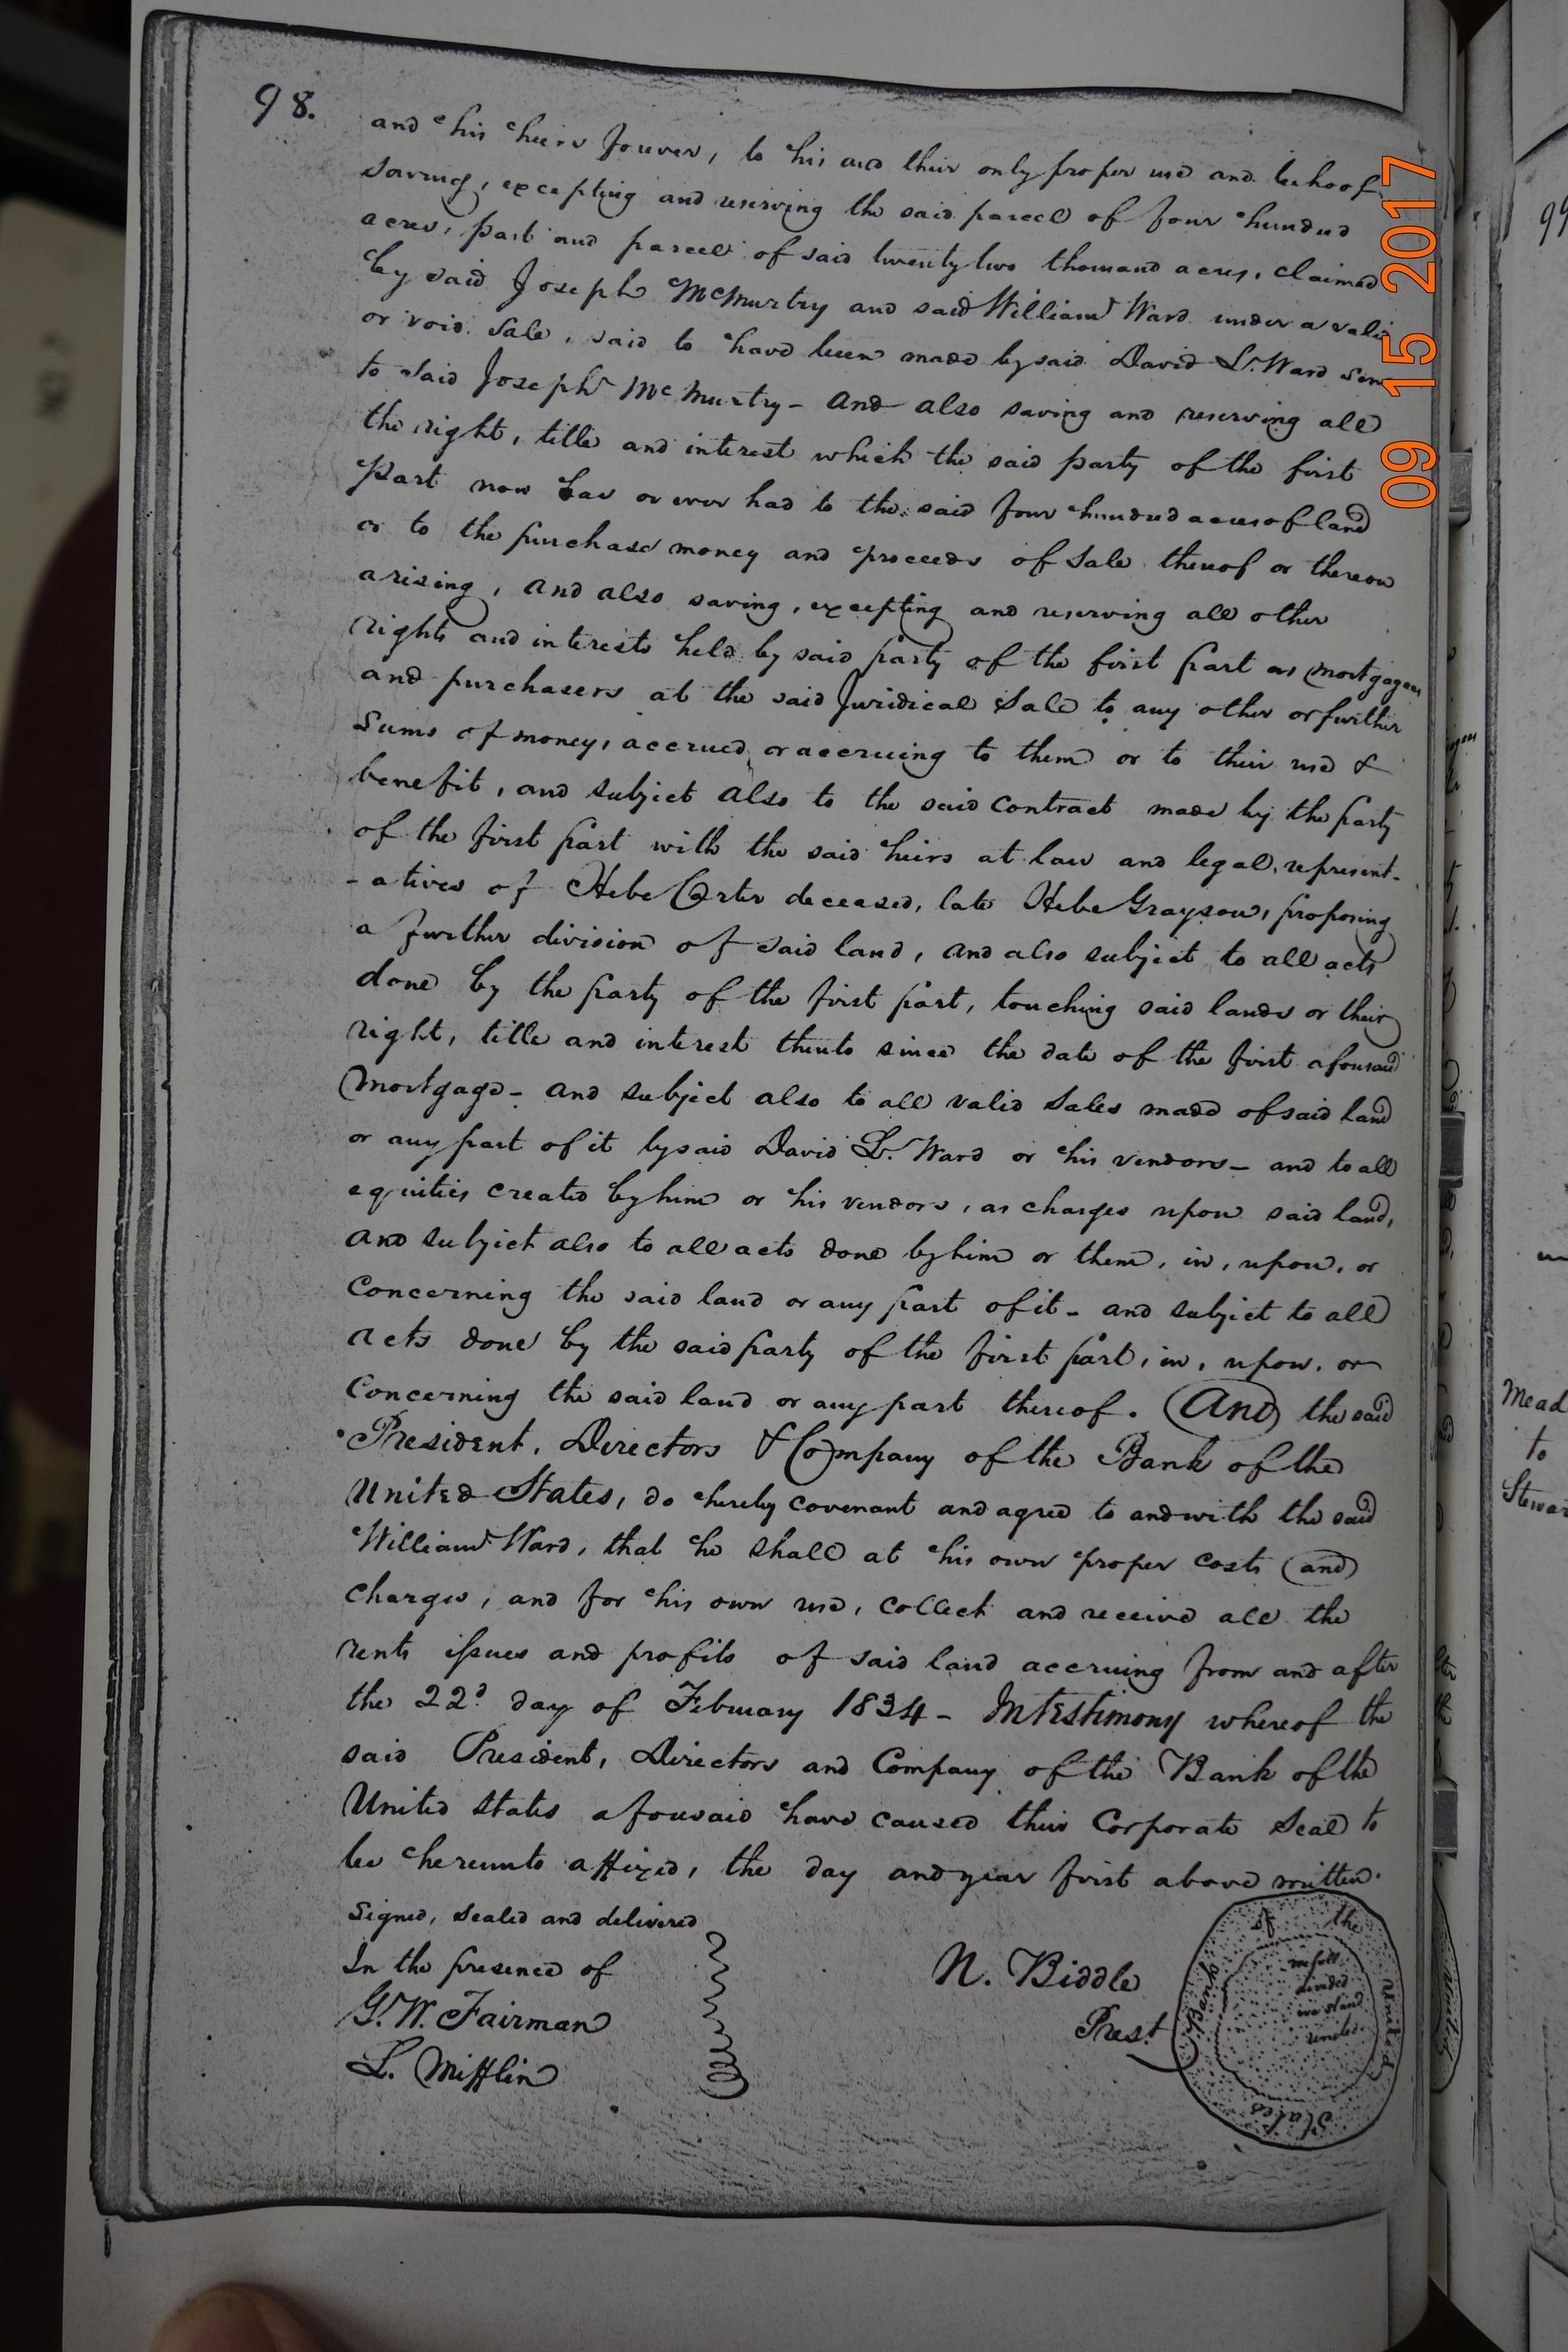 98.
and his heirs forever, to his and their only proper use and behoof
saving, excepting and reserving the said parcel of four hundred
acres, part and parcel of said twenty two thousand acres, claimed
by said Joseph McMurtry and said William Ward under a valid
or void Sale, said to have been made by said David L. Ward Senr
to said Joseph McMurtry - and also saving and reserving all
the right, title and interest which the said party of the first
part now has or ever had to the said four hundred acres of land
or to the purchase money and proceeds of Sale thereof or thereon
arising, and also saving, excepting and reserving all other
rights and interests held by said party of the first part as mortgagees
and purchasers at the said Juridical Sale to any other or further
sums of money, accrued or accruing to them or to their use &
benefit, and subject also to the said contract made by the party
of the first part with the said heirs at law and legal, represent-
-atives of Hebe Carter deceased, late Hebe Grayson, proposing
a further division of said land, and also subject to all acts
done by the party of the first part, touching said lands or their
right, title and interest thereto since the date of the first aforesaid
Mortgage - and subject also to all valid Sales made of said land
or any part of it by said David L. Ward or his vendors - and to all
equities created by him or his vendors, as charges upon said land,
and subject also to all acts done by him or them, in, upon, or
Concerning the said land or any part of it - and subject to all
acts done by the said party of the first part, in, upon, or
Concerning the said land or any part thereof. And the said
President, Directors & Company of the Bank of the
United States, do hereby covenant and agree to and with the said
William Ward, that he shall at his own proper costs and
charges, and for his own use, collect and receive all the
rents issues and profits of said land accruing from and after
the 22d day of February 1834 - In testimony whereof the
said President, Directors and Company of the Bank of the
United States aforesaid have caused their Corporate Seal to
be hereunto affixed, the day and year first above written.
Signed, sealed and delivered
In the presence of
G. W. Fairman
L. Mifflin
N. Biddle
Prest
Bank of the United States
divided
we stand
09 15 2017
99
Mead
to
Stewar